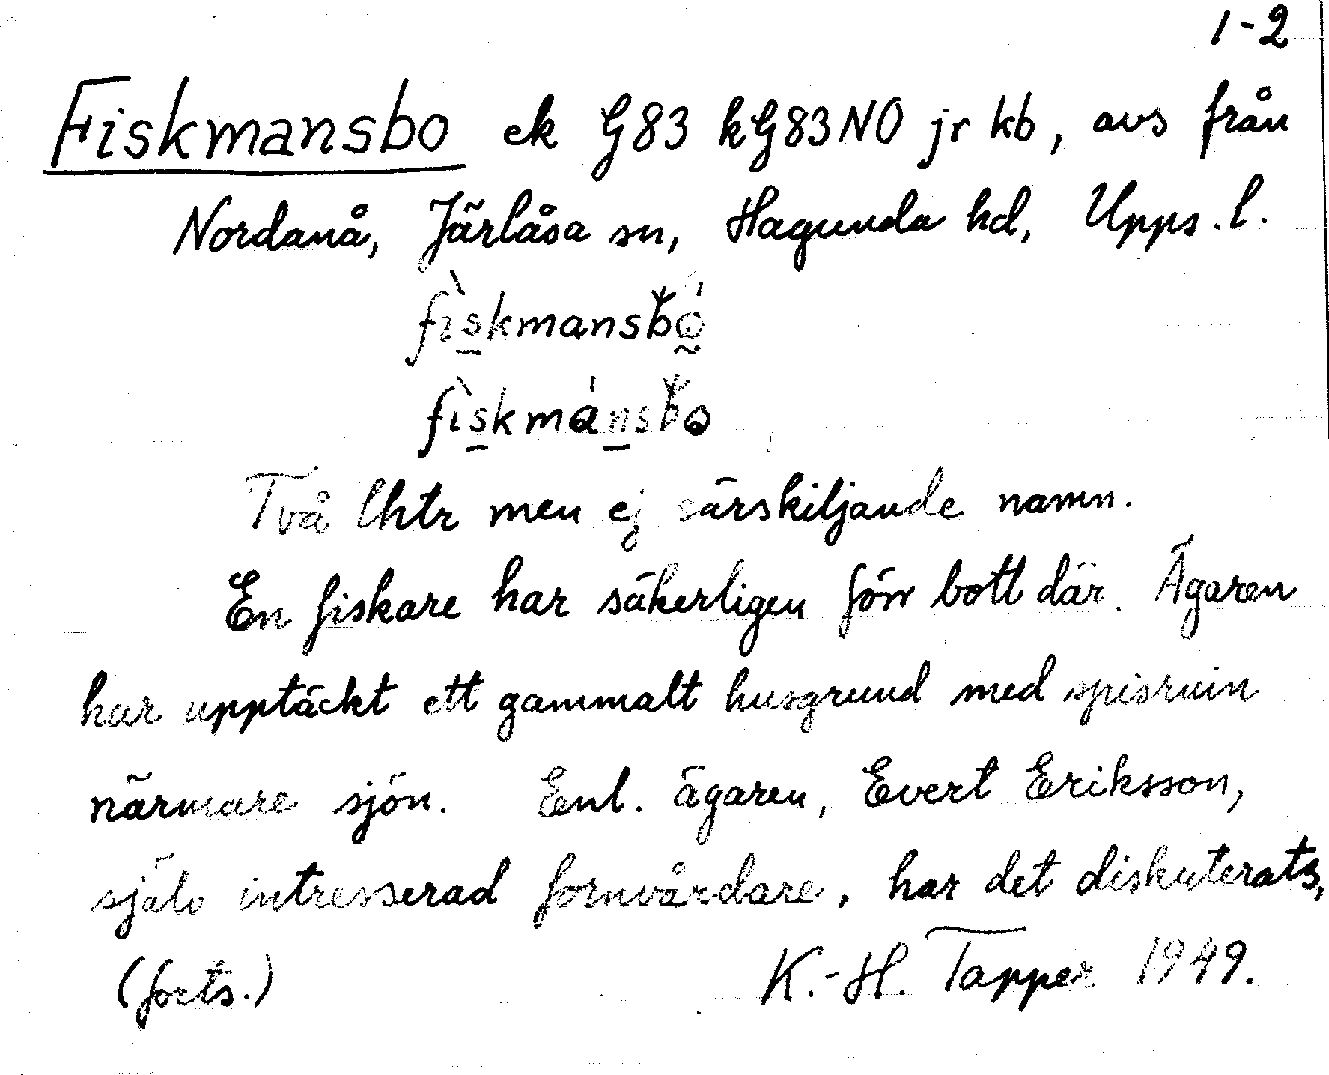 1-2
Fiskmansbo ek G83 kG83NO jr kb, avs från
Nordanå, Järlåsa sn, Hagunda hd, Upps. l.
fìskmansbó
fìskmánsbo
Två lhtr men ej särskiljande namn.
En fiskare har säkerligen förr bott där. Ägaren
har upptäckt ett gammalt husgrund med spisruin
närmare sjön. Enl. ägaren, Evert Eriksson,
själv intresserad fornvårdare, har det diskuterats,
(forts.) K.-H. Tapper 1949.